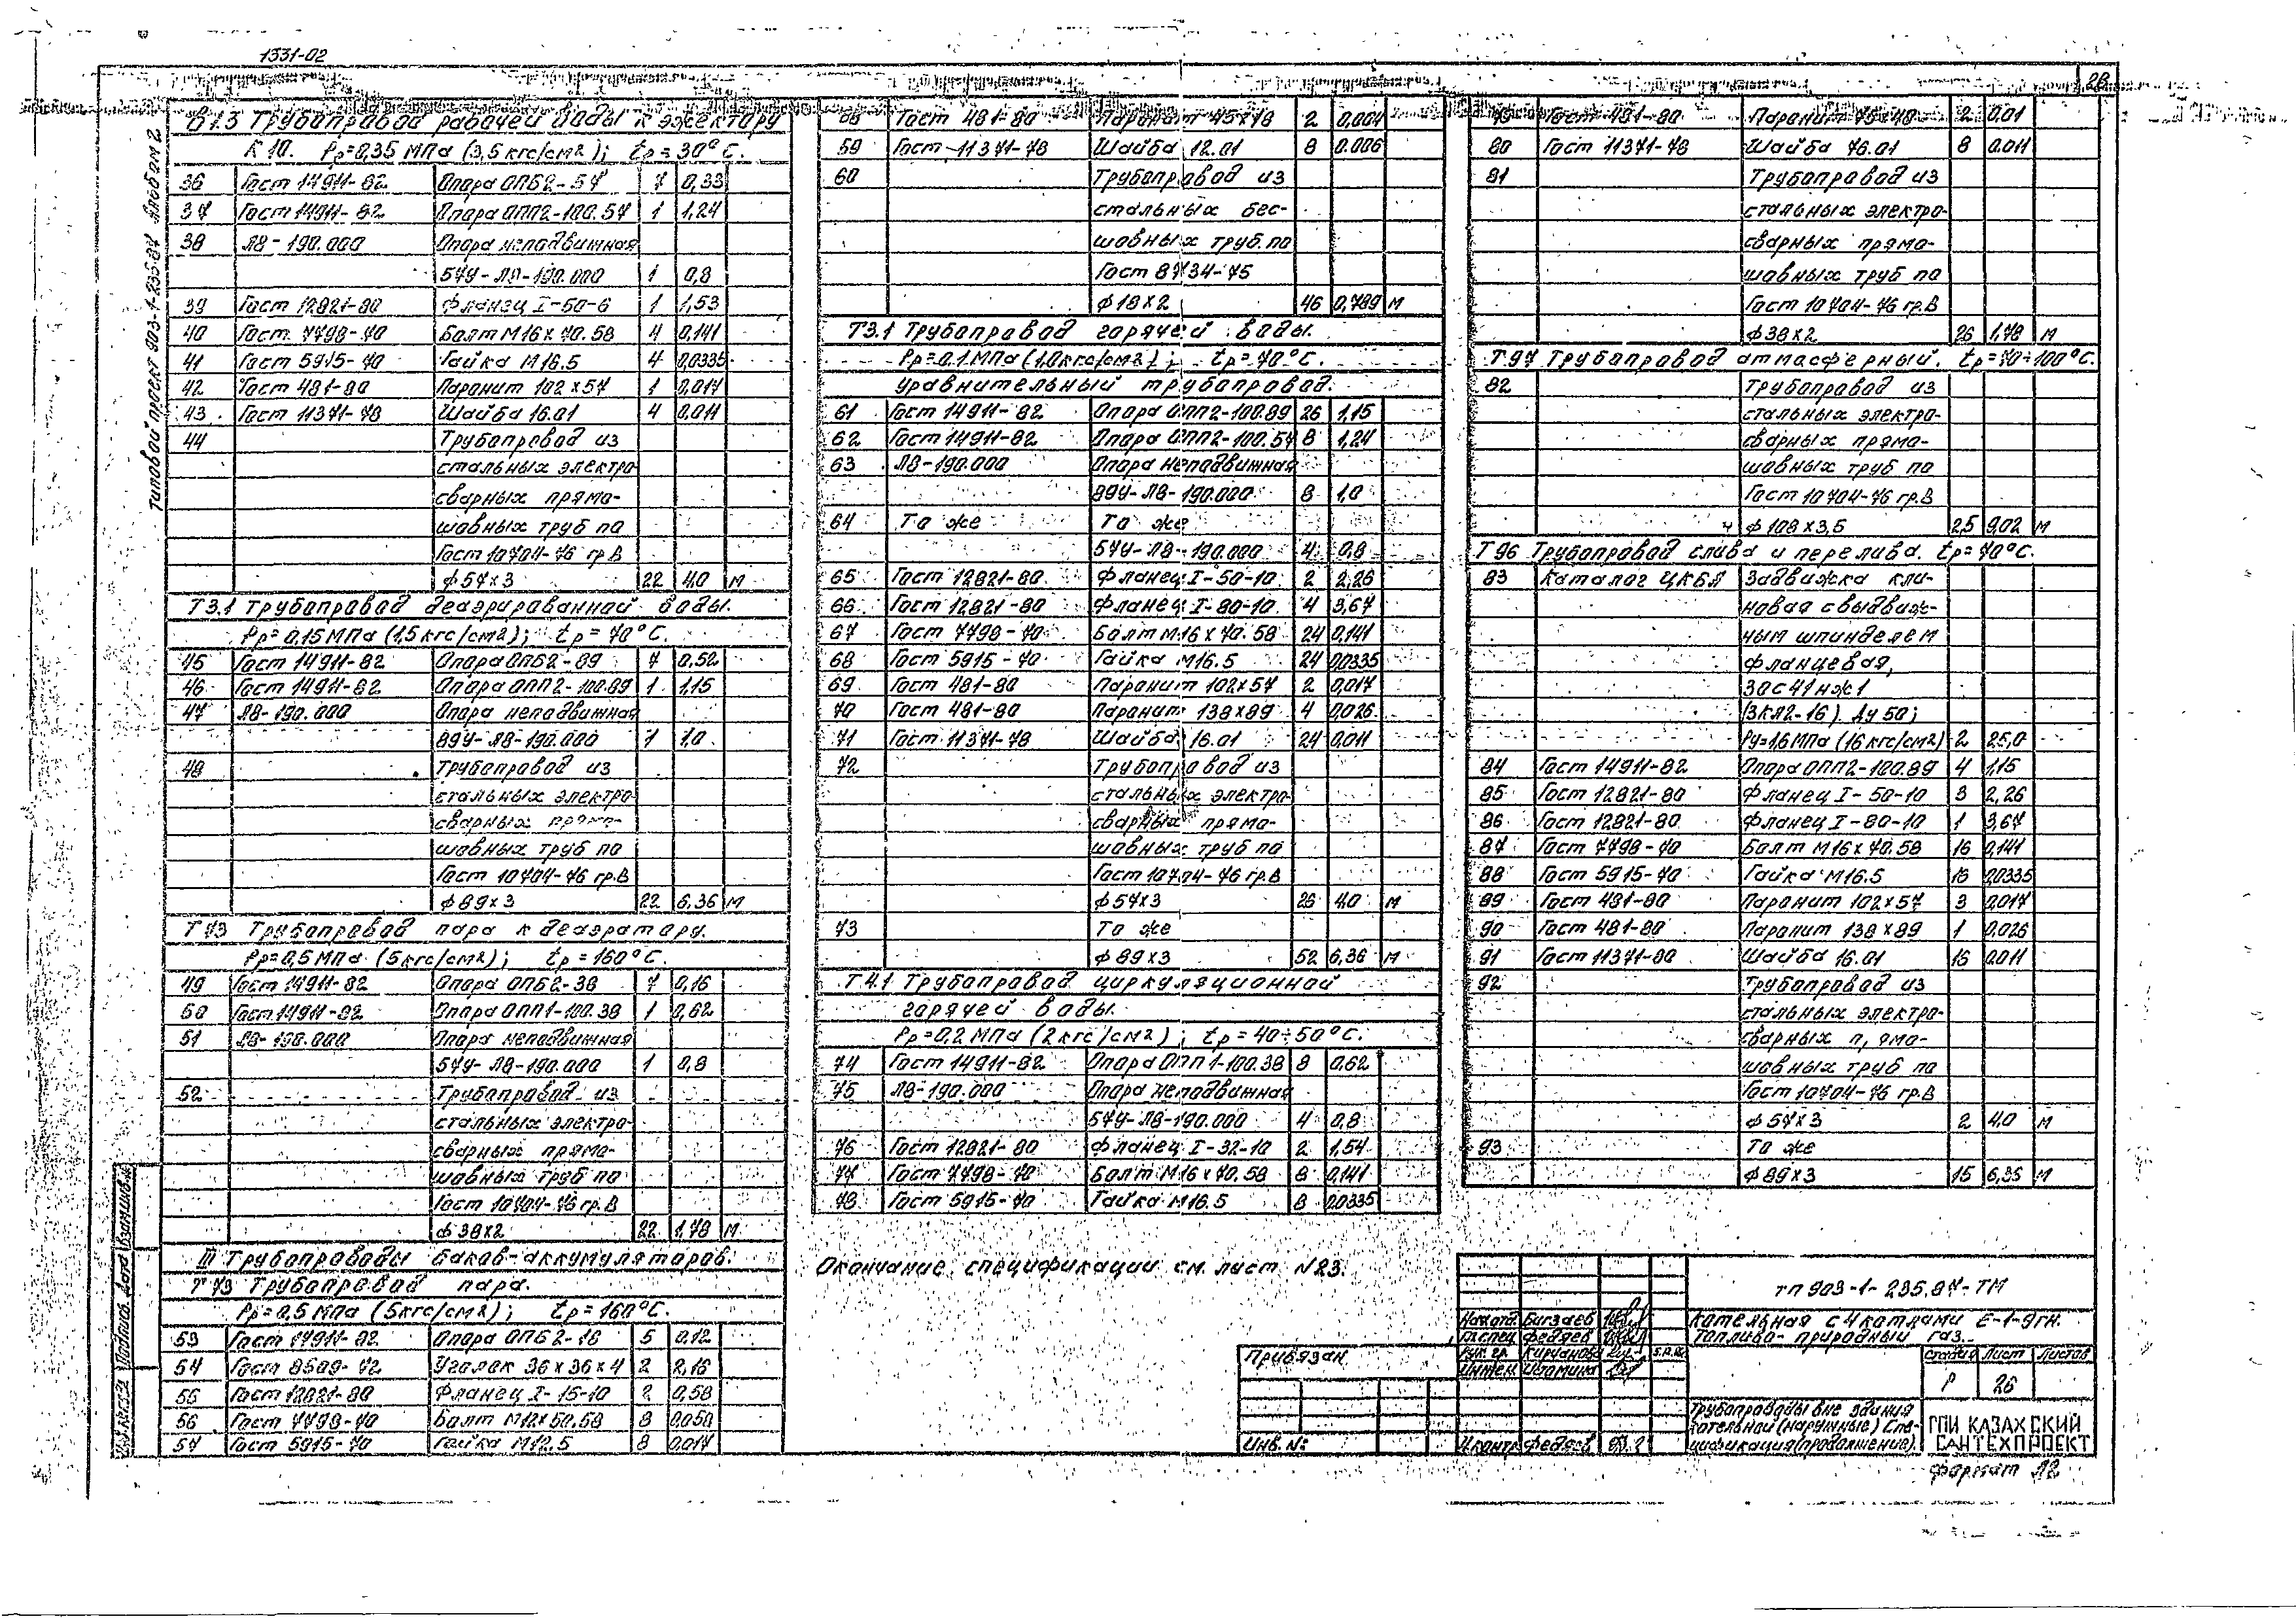 1331-02
28
Типовой проект 903-1-235.87 Альбом 2
В1.3 Трубопровод рабочей воды к эжектору
К10. Рр=0,35 МПа (3,5 кгс/см2); tр=30°С.
36 Гост 14911-82 Опора ОПБ2-57 7 0,33
37 Гост 14911-82 Опора ОПП2-100.57 1 1,24
38 Л8-190.000 Опора неподвижная
57У-Л8-190.000 1 0,8
39 Гост 12821-80 Фланец I-50-6 1 1,53
40 Гост 7798-70 Болт М16х70.58 4 0,141
41 Гост 5915-70 Гайка М16.5 4 0,0335
42 Гост 481-80 Паронит 102х57 1 0,017
43 Гост 11371-78 Шайба 16.01 4 0,011
44 Трубопровод из
стальных электро-
сварных прямо-
шовных труб по
Гост 10704-76 гр.В
ф57х3 22 4,0 м
Т3.1 Трубопровод деаэрированной воды.
Рр=0,15 МПа (1,5 кгс/см2); tр=70°С.
45 Гост 14911-82 Опора ОПБ2-89 7 0,52
46 Гост 14911-82 Опора ОПП2-100.89 1 1,15
47 Л8-190.000 Опора неподвижная
89У-Л8-190.000 1 1,0
48 Трубопровод из
стальных электро-
сварных прямо-
шовных труб по
Гост 10704-76 гр.В
ф89х3 22 6,36 м
Т73 Трубопровод пара к деаэратору.
Рр=0,5 МПа (5кгс/см2); tр=160°С.
49 Гост 14911-82 Опора ОПБ2-38 7 0,16
50 Гост 14911-82 Опора ОПП1-100.38 1 0,62
51 Л8-190.000 Опора неподвижная
57У-Л8-190.000 1 0,8
52 Трубопровод из
стальных электро-
сварных прямо-
шовных труб по
Гост 10704-76 гр.В
ф38х2 22 1,78 м
III Трубопроводы баков-аккумуляторов.
Т73 Трубопровод пара.
Рр=0,5 МПа (5кгс/см2); tр=160°С.
53 Гост 14911-82 Опора ОПБ2-18 5 0,12
54 Гост 8509-72 Уголок 36х36х4 2 2,16
55 Гост 12821-80 Фланец I-15-10 2 0,58
56 Гост 7798-70 Болт М12х50.58 8 0,050
57 Гост 5915-70 Гайка М12.5 8 0,017
58 Гост 481-80 Паронит 45х18 2 0,004
59 Гост 11371-78 Шайба 12.01 8 0.006
60 Трубопровод из
стальных бес-
шовных труб по
Гост 8734-75
ф18х2 46 0,789 м
Т3.1 Трубопровод горячей воды.
Рр=0.1 МПа (1,0кгс/см2); tр=70°С.
Уравнительный трубопровод.
61 Гост 14911-82 Опора ОПП2-100.89 26 1,15
62 Гост 14911-82 Опора ОПП2-100.57 8 1,24
63 Л8-190.000 Опора неподвижная
89У-Л8-190.000 8 1,0
64 То же То же
57У-Л8-190.000 4 0,8
65 Гост 12821-80 Фланец I-50-10 2 2,26
66 Гост 12821-80 Фланец I-80-10 4 3,67
67 Гост 7798-70 Болт М16х70.58 24 0,141
68 Гост 5915-70 Гайка М16.5 24 0,0335
69 Гост 481-80 Паронит 102х57 2 0,017
70 Гост 481-80 Паронит 138х89 4 0,026
71 Гост 11371-78 Шайба 16.01 24 0,011
72 Трубопровод из
стальных электро-
сварных прямо-
шовных труб по
Гост 10704-76 гр.В
ф57х3 26 4,0 м
73 То же
ф89х3 52 6,36 м
Т4.1 Трубопровод циркуляционной
горячей воды.
Рр=0,2 МПа (2кгс/см2); tр=40÷50°С.
74 Гост 14911-82 Опора ОПП1-100.38 8 0,62
75 Л8-190.000 Опора неподвижная
57У-Л8-190.000 4 0,8
76 Гост 12821-80 Фланец I-32-10 2 1,54
77 Гост 7798-70 Болт М16х70.58 8 0,141
78 Гост 5915-70 Гайка М16.5 8 0,0335
Окончание спецификации см. лист N23.
79 Гост 481-80 Паронит 2 0,01
80 Гост 11371-78 Шайба 16.01 8 0.011
81 Трубопровод из
стальных электро-
сварных прямо-
шовных труб по
Гост 10704-76 гр.В
ф38х2 26 1,78 м
Т97 Трубопровод атмосферный. tр=70÷100°С.
82 Трубопровод из
стальных электро-
сварных прямо-
шовных труб по
Гост 10704-76 гр.В
ф108х3,5 25 9,02 м
Т96 Трубопровод слива и перелива. tр=70°С.
83 Каталог ЦКБА Задвижка кли-
новая с выдвиж-
ным шпинделем
фланцевая,
30с41нж1
(ЗКЛ2-16) Ду50;
Ру=1,6 МПа (16 кгс/см2) 2 25,0
84 Гост 14911-82 Опора ОПП2-100.89 4 1,15
85 Гост 12821-80 Фланец I-50-10 3 2,26
86 Гост 12821-80 Фланец I-80-10 1 3,67
87 Гост 7798-70 Болт М16х70.58 16 0,141
88 Гост 5915-70 Гайка М16.5 16 0,0335
89 Гост 481-80 Паронит 102х57 3 0,017
90 Гост 481-80 Паронит 138х89 1 0,026
91 Гост 11371-80 Шайба 16.01 16 0,011
92 Трубопровод из
стальных электро-
сварных прямо-
шовных труб по
Гост 10704-76 гр.В
ф57х3 2 4,0 м
93 То же
ф89х3 15 6,35 м
Привязан
Инв. №
Нач.отд. Бигзаев
Гл.спец Федяев
Рук. гр.
Инжен.
Н.контр Федяев
тп 903-1-235.87-ТМ
Котельная с 4 котлами Е-1-9ГН.
Топливо-природный газ.
Стадия Лист Листов
Р 26
Трубопроводы вне здания
котельной (наружные) Спе-
цификация (продолжение).
ГПИ КАЗАХСКИЙ
САНТЕХПРОЕКТ
Формат А2